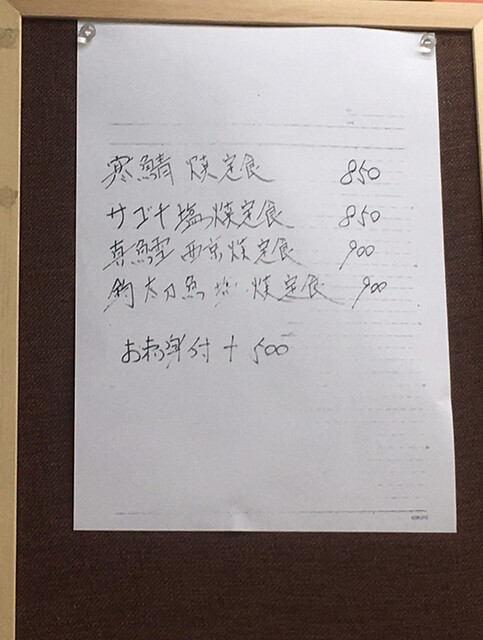 寒鯖 焼定食 850
サゴチ塩焼定食 850
真鱈西京焼定食 900
釣太刀魚塩焼定食 900
お刺身付 + 500